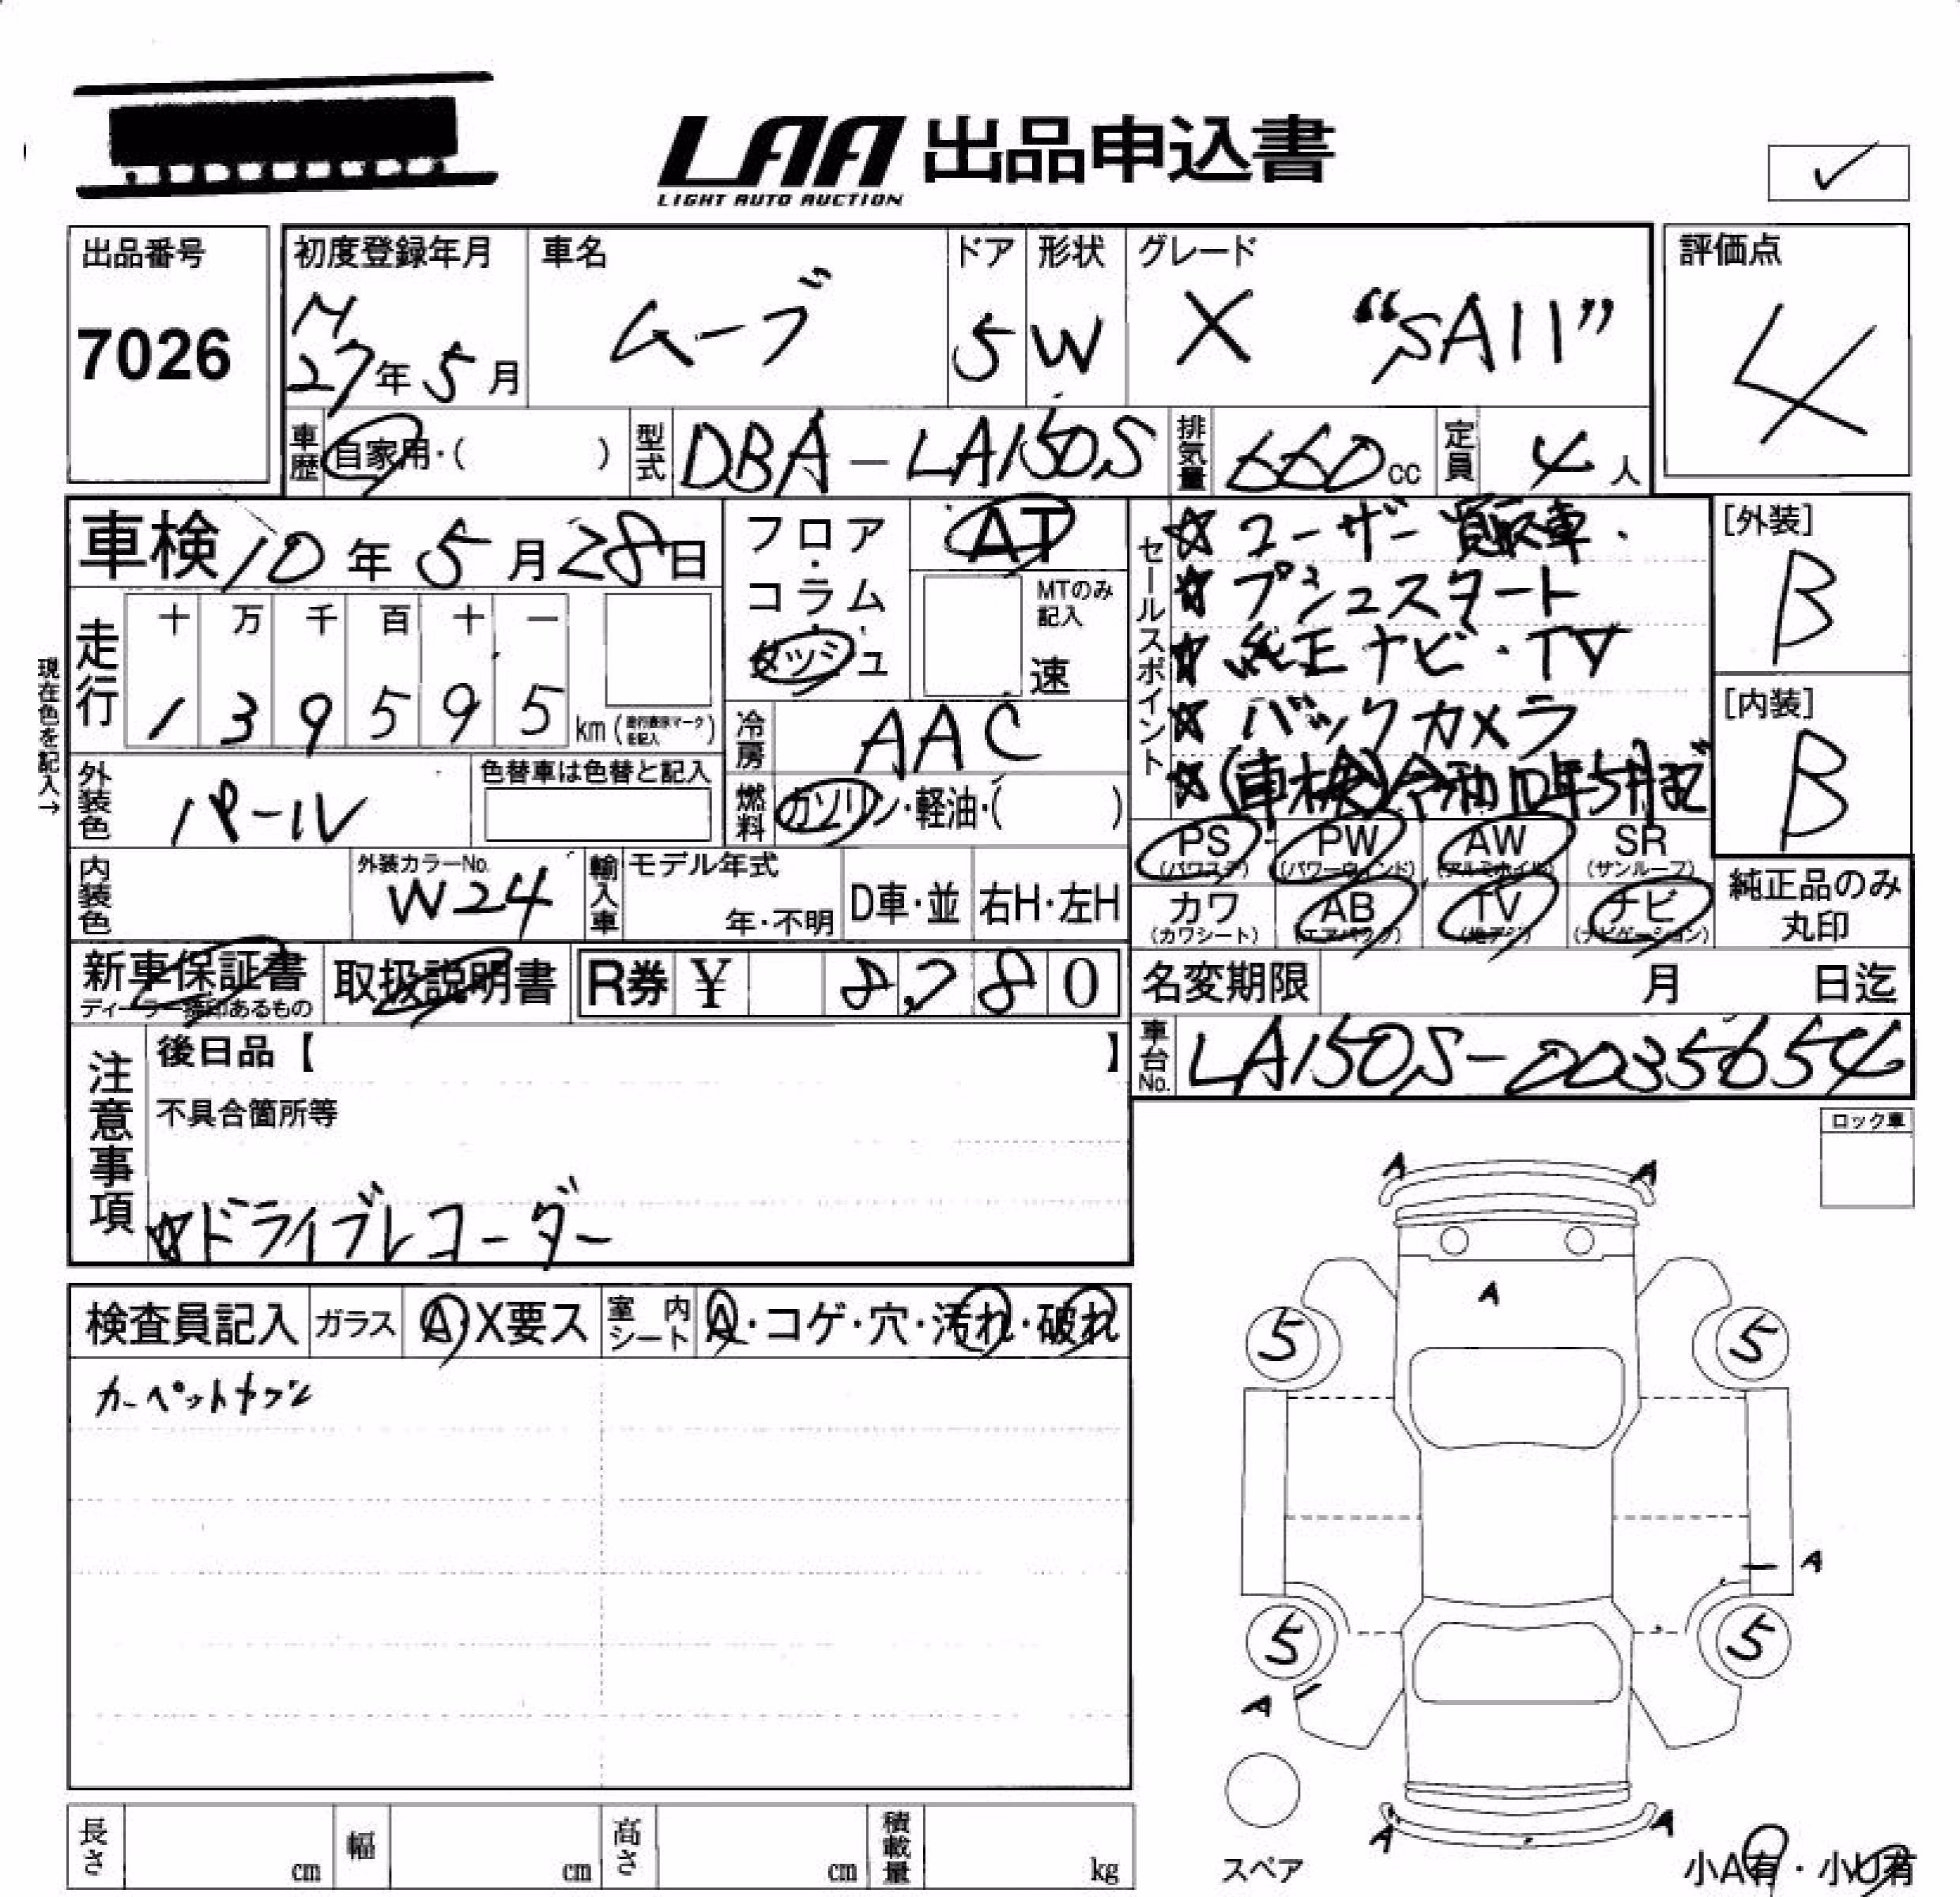 LAA 出品申込書
LIGHT AUTO AUCTION
✓
出品番号
7026
初度登録年月
H
27年5月
車名
ムーブ
ドア
5
形状
W
グレード
X "SAII"
評価点
4
車歴
自家用・( )
型式
DBA-LA150S
排気量
660cc
定員
4人
車検 10年5月28日
走行
十 万 千 百 十 一
1 3 9 5 9 5 km
現在色を記入→
外装色
パール
色替車は色替と記入
内装色
外装カラーNo.
W24
フロア・
コラム・
ダッシュ
AT
MTのみ
記入
速
冷房
AAC
燃料
ガソリン・軽油・( )
輸入車
モデル年式
年・不明
D車・並
右H・左H
セールスポイント
☆ユーザー買取車.
☆プシュスタート
☆純正ナビ・TV
☆バックカメラ
☆(車検)令和10年5月迄
[外装]
B
[内装]
B
PS
(パワステ)
PW
(パワーウィンド)
AW
(アルミホイル)
SR
(サンルーフ)
カワ
(カワシート)
AB
(エアバック)
TV
(地デジ)
ナビ
(ナビゲーション)
純正品のみ
丸印
新車保証書
取扱説明書
R券 ¥ 8,280
名変期限 月 日迄
車台No.
LA150S-0035654
注意事項
後日品【 】
不具合箇所等
☆ドライブレコーダー
ロック車
検査員記入
ガラス
A・X要ス
室内
シート
A・コゲ・穴・汚れ・破れ
A A
A
5 5
A
5 5
A
A A
スペア
小A有・小U有
長さ cm
幅 cm
高さ cm
積載量 kg